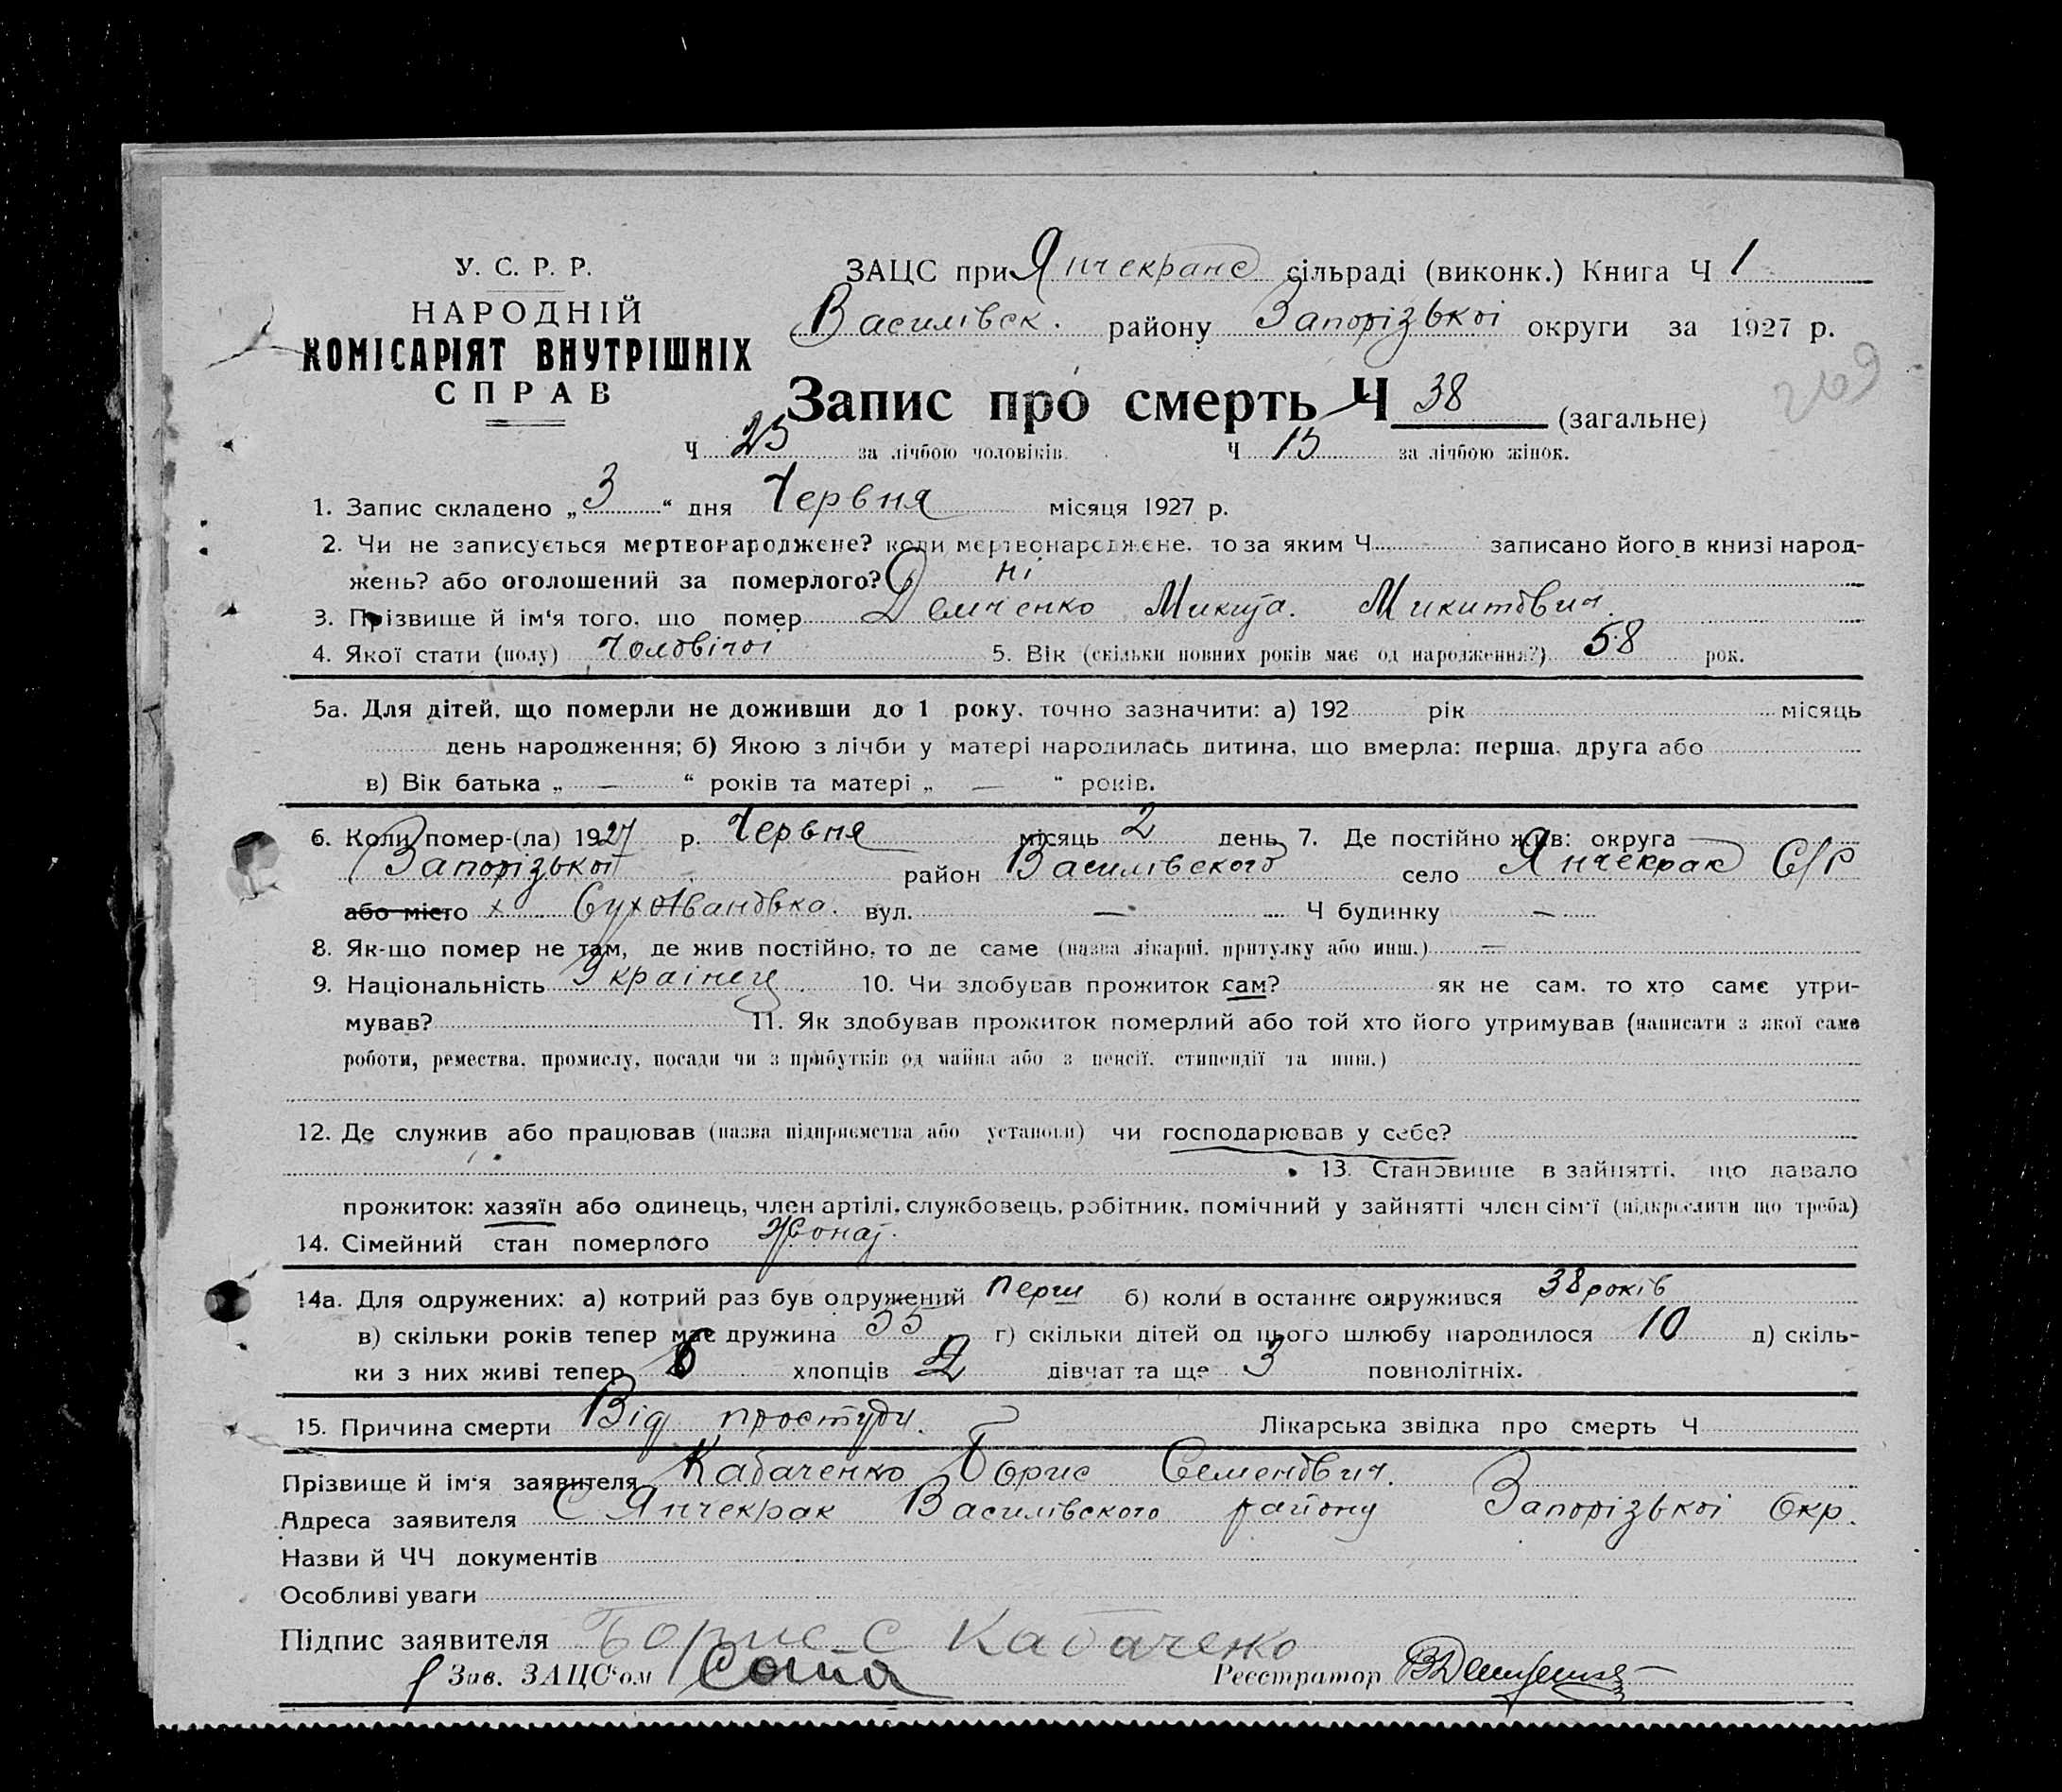 У. С. Р. Р.
НАРОДНІЙ
КОМІСАРІЯТ ВНУТРІШНІХ
СПРАВ
ЗАЦС при Янчекране сільраді (виконк.) Книга Ч 1
Василівск. району Запорізької округи за 1927 р.
269
Запис про смерть Ч 38 (загальне)
Ч 25 за лічбою чоловіків. Ч 13 за лічбою жінок.
1. Запис складено „3“ дня Червня місяця 1927 р.
2. Чи не записується мертвонароджене? коли мертвонароджене, то за яким Ч записано його в книзі народ-
жень? або оголошений за померлого? ні
3. Прізвище й ім'я того, що помер Демченко Микита Микитович.
4. Якої стати (полу) Чоловічої 5. Вік (скільки повних років має од народження?) 58 рок.
5а. Для дітей, що померли не доживши до 1 року, точно зазначити: а) 192 рік місяць
день народження; б) Якою з лічби у матері народилась дитина, що вмерла: перша, друга або
в) Вік батька „ — “ років та матері „ — “ років.
6. Коли помер-(ла) 1927 р. Червня місяць 2 день 7. Де постійно жив: округа
Запорізької район Василівского село Янчекрак С/Р
або місто х Сухоівановка. вул. — Ч будинку —
8. Як-що помер не там, де жив постійно, то де саме (назва лікарні, притулку або инш.) —
9. Національність Українец. 10. Чи здобував прожиток сам? як не сам, то хто саме утри-
мував? 11. Як здобував прожиток померлий або той хто його утримував (написати з якої саме
роботи, ремества, промислу, посади чи з прибутків од майна або з пенсії, стипендії та инш.)
12. Де служив або працював (назва підприємства або установи) чи господарював у себе?
13. Становище в зайнятті, що давало
прожиток: хазяїн або одинець, член артілі, службовець, робітник, помічний у зайнятті член сім'ї (підкреслити що треба)
14. Сімейний стан померлого Жонат.
14а. Для одружених: а) котрий раз був одружений перш б) коли в останнє одружився 38 років
в) скільки років тепер має дружина 55 г) скільки дітей од цього шлюбу народилося 10 д) скіль-
ки з них живі тепер хлопців 2 дівчат та ще 3 повнолітніх.
15. Причина смерти Від простуди. Лікарська звідка про смерть Ч
Прізвище й ім'я заявителя Кабаченко Борис Семенович.
Адреса заявителя С Янчекрак Василівского району Запорізької Окр.
Назви й ЧЧ документів
Особливі уваги
Підпис заявителя Борис С Кабаченко
Зав. ЗАЦС'ом Реєстратор